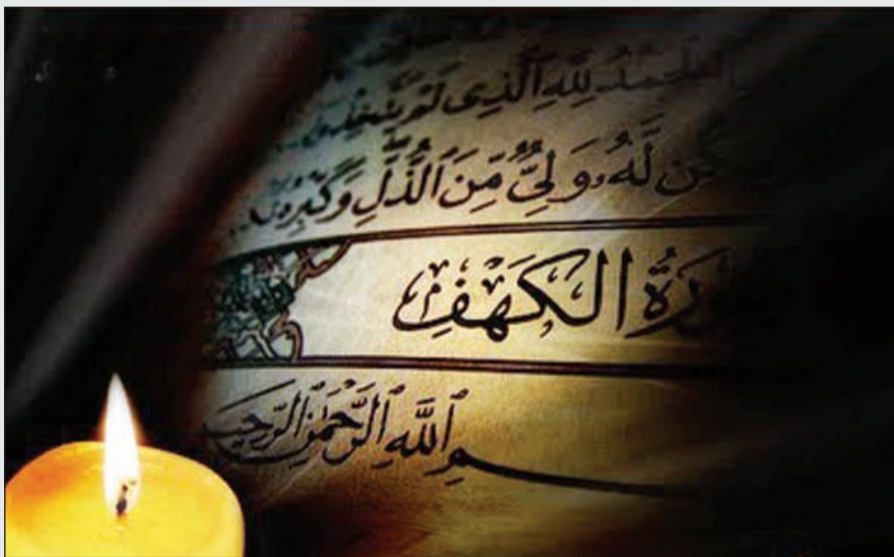 الحَمْدُ لِلَّهِ الَّذِى لَمْ يَتَّخِذْ
يَكُن لَّهُۥ وَلِىٌّ مِّنَ ٱلذُّلِّ وَكَبِّرْهُ
سُورَةُ الكَهْفِ
بِسْمِ ٱللَّهِ ٱلرَّحْمَٰنِ ٱلرَّحِيمِ